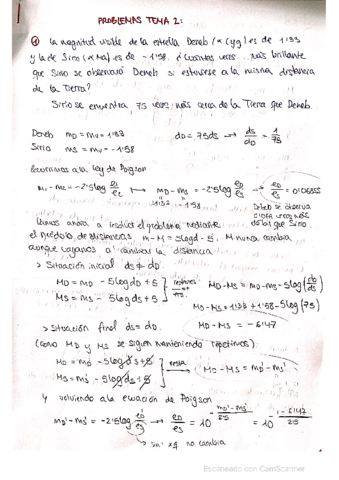 PROBLEMAS TEMA 2:
① La magnitud visible de la estrella Deneb (α Cyg) es de 1'33
y la de Sirio (α Ma) es de -1'58. ¿Cuantas veces más brillante
que Sirio se observará Deneb si estuviese a la misma distancia
de la Tierra?
Sirio se encuentra 75 veces más cerca de la Tierra que Deneb.
Deneb mD = mv = 1'33 dD = 75 ds → ds/dD = 1/75
Sirio ms = mv = -1'58
Recurrimos a la ley de Pogson
m1 - m2 = -2'5 log e1/e2 → mD - ms = -2'5 log eD/es → eD/es = 0'06855
1'33 -1'58
Deneb se observa
0'0688 veces más
que Sirio
Vamos ahora a resolver el problema mediante
el módulo de distancias m - M = 5 log d - 5. M nunca cambia
aunque vayamos a cambiar la distancia
> Situación inicial ds ≠ dD
MD = mD - 5 log dD + 5
Ms = ms - 5 log ds + 5
MD - Ms = mD - ms - 5 log (dD/ds)
MD - Ms = 1'33 + 1'58 - 5 log (75)
> Situación final ds = dD. MD - Ms = -6'47
(como MD y Ms se siguen manteniendo repetimos)
MD = mD' - 5 log d + 5
Ms = ms' - 5 log d + 5
resta
MD - Ms = mD' - ms'
Y volviendo a la ecuación de Pogson
mD' - ms' = -2'5 log eD'/es' → eD/es = 10^(-(mD' - ms')/2'5) = 10^(-(-6'47)/2'5)
no cambia
Escaneado con CamScanner